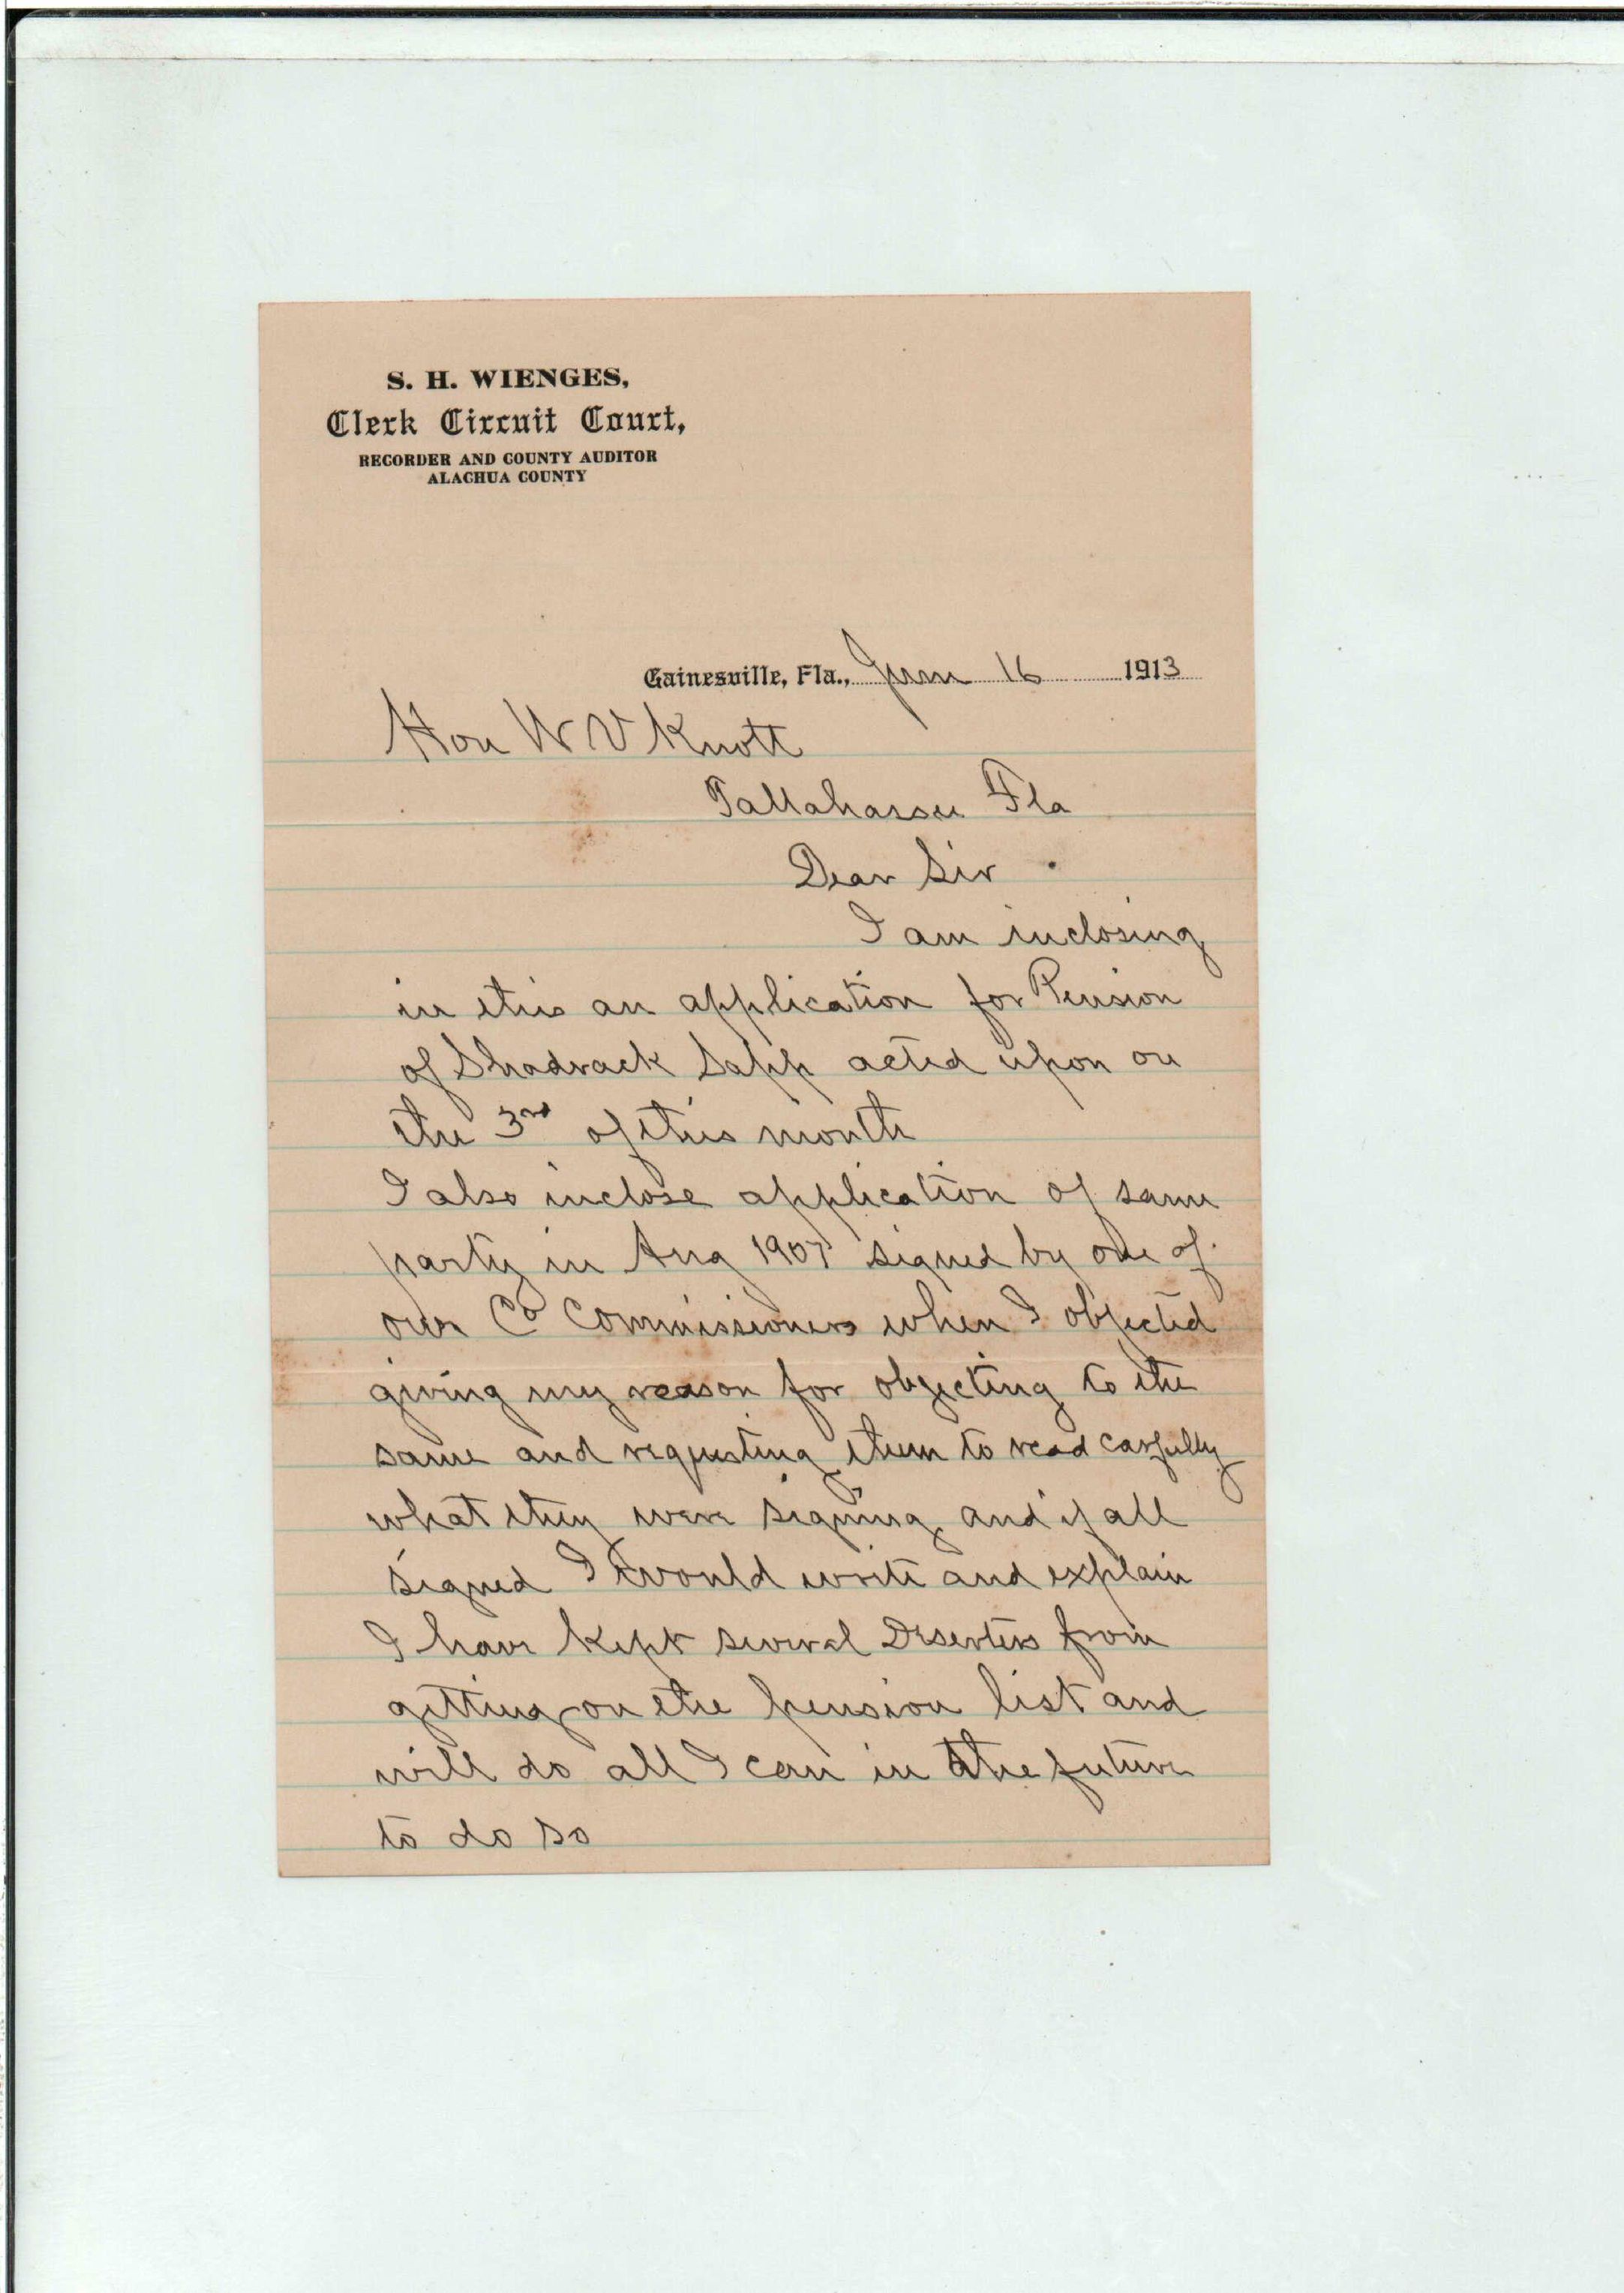 S. H. WIENGES,
Clerk Circuit Court,
RECORDER AND COUNTY AUDITOR
ALACHUA COUNTY
Gainesville, Fla., June 16 1913
Hon W V Knott
Tallahassee Fla
Dear Sir
I am inclosing
in this an application for Pension
of Shadrack Sapp acted upon on
the 3rd of this month
I also inclose application of same
party in Aug 1907 signed by one of
our Co Commissioners when I objected
giving my reason for objecting to the
same and requesting them to read carfully
what they were signing and if all
signed I would write and explain
I have kept several Deserters from
getting on the pension list and
will do all I can in the future
to do so